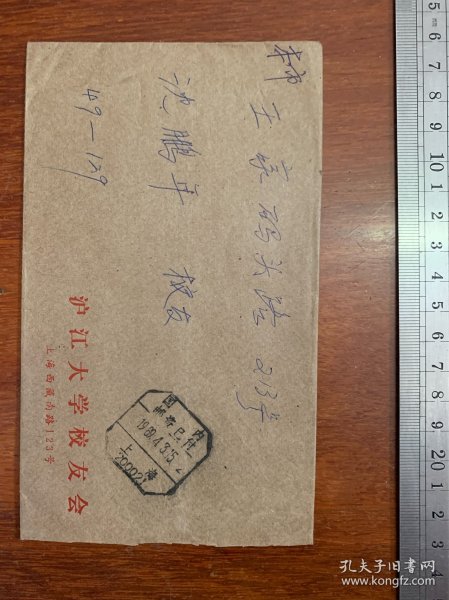 本市
王家码头路213号
沈鹏年 校友
49—129
沪江大学校友会
上海西藏南路123号
国内
邮资已付
上海
200002
孔夫子旧书网
www.kongfz.com
5 6 7 8 9 10 1 2 3 4 5 6 7 8 9 20 1 2 3 4